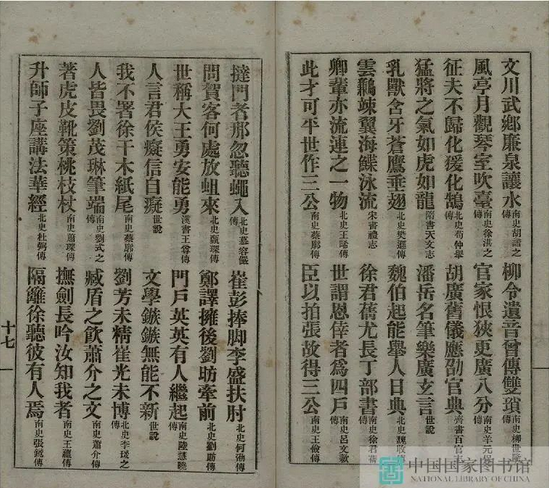 文川武鄉廉泉讓水南史胡諧之傳 柳令遺音曾傳雙瑣南史柳世隆傳
風亭月觀琴室吹臺南史徐湛之傳 官家恨狹更廣八分南史羊元保傳
征夫不歸化猨化鵠北史苟仲舉傳 胡廣舊儀應劭官典
猛將之氣如虎如龍隋書天文志 潘岳名筆樂廣玄言世說
乳獸含牙蒼鷹垂翅北史樊遜傳 魏伯起能舉人日典北史魏收傳
雲鶴竦翼海鰈泳流宋書禮志 徐君蒨尤長丁部書南史徐君蒨傳
卿輩亦流連之一物北史王晞傳 世謂恩倖者為四戶南史呂文顯傳
此才可平世作三公南史蔡廓傳 臣以拍張故得三公南史王儉傳
撻門者那忽聽蠅入北史慕容儼傳 崔彭捧腳李盛扶肘北史何妥傳
問賀客何處放蛆來北史甄琛傳 鄭譯擁後劉昉牽前北史劉昉傳
世稱大王勇安能勇漢書王尊傳 門戶英英有人繼起南史陸慧曉傳
人言君侯癡信自癡世說 文學鏃鏃無能不新世說
我不署徐干木紙尾南史蔡廓傳 劉芳未精崔光未博北史李琰之傳
人皆畏劉茂琳筆端南史劉式之傳 臧盾之飲蕭介之文南史蕭介傳
著虎皮靴策桃枝杖南史蕭琛傳 撫劍長吟汝知我者南史王蘊傳
升師子座講法華經北史杜弼傳 隔籬徐聽彼有人焉南史張鏡傳
十七
中国国家图书馆
NATIONAL LIBRARY OF CHINA